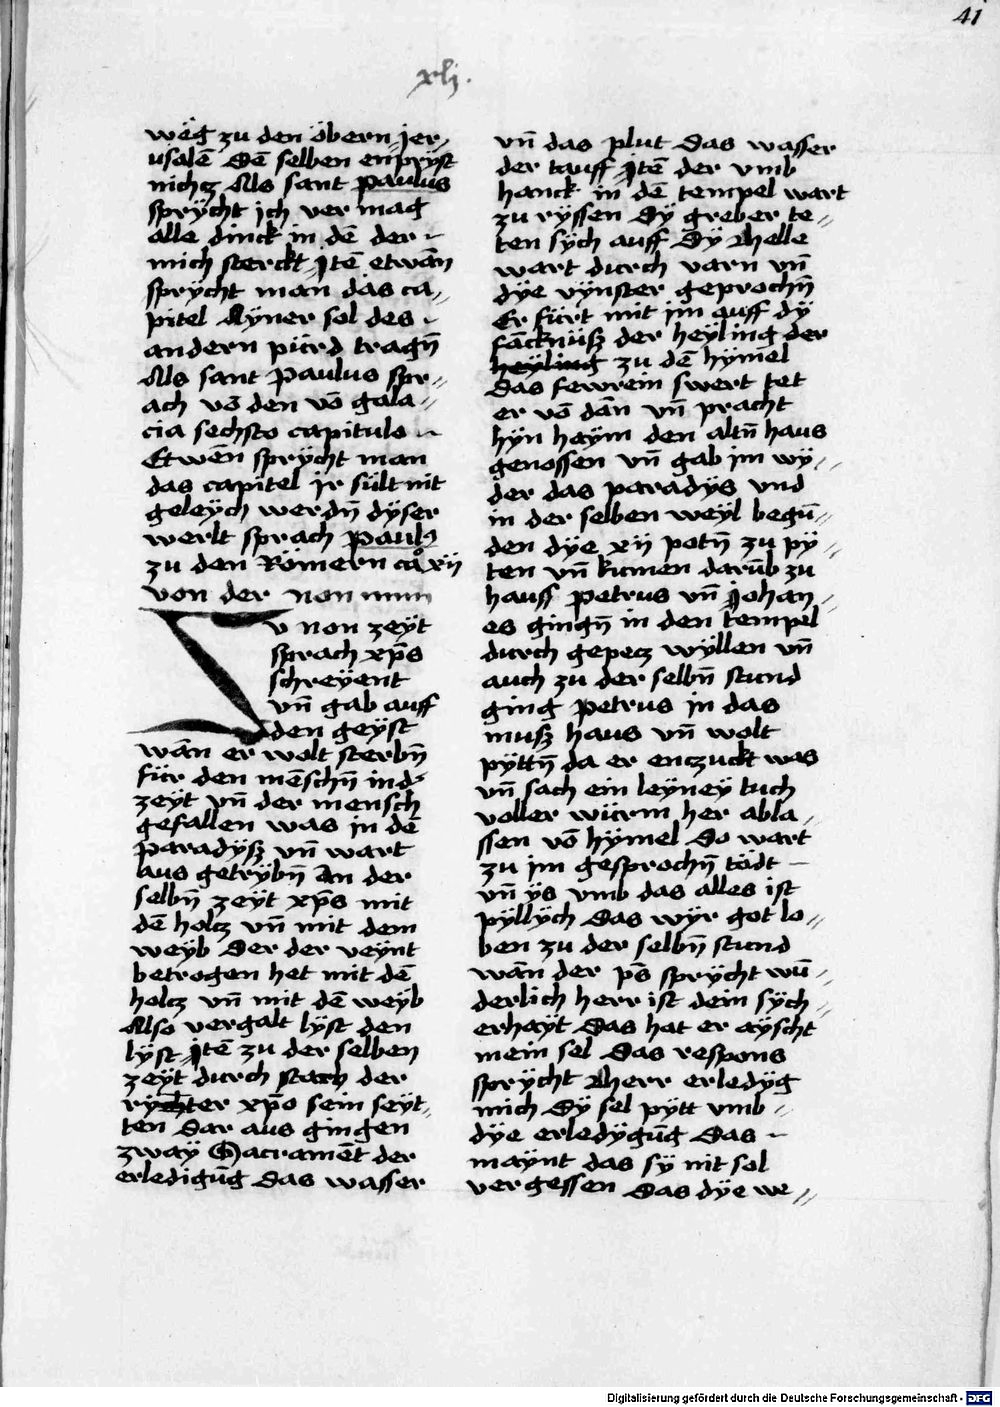 41
xlj.
weg zu den öbern Jer,
usalē Dē selben enpryst
nichcz Als sant paulus
sprÿcht ich ver mag
alle dinck in dē der
mich sterckt Jtē etwān
sprÿcht man das ca„
pitel Aÿner sol des
andern pürd tragn̄
Als sant Paulus spr„
ach vō den vō gala„
cia sechsto capitulo
Etwēn sprÿcht man
das capitel ir sült nit
geleÿch werdn̄ dÿser
werlt sprach paul9
zu den Römern ca° xij
von der non
Zv non zeÿt
sprach xp̄s
schreÿent
vn̄ gab auff
den geÿst
wān er wolt sterbn̄
für den mēschn̄ in d'
zeÿt vn̄ der mensch
gefallen was in dē
paradÿß vn̄ wart
aus getrÿbn̄ An der
selbn̄ zeÿt xp̄s mit
dē holcz vn̄ mit dem
weÿb Der der veÿnt
betrogen het mit dē
holcz vn̄ mit dē weÿb
Also vergalt lÿst den
lÿst Jtē zu der selben
zeÿt durch stach der
rychter xp̄o sein seÿt,
ten Dar aus gingen
zwaÿ Sacramēt der
erledigūg Das wasser
vn̄ das plut Das wasser
der tauff Jtē der vmb
hanck in dē tempel wart
zu ryssen Dy greber te„
ten sÿch auff Dÿ Helle
wart durch varn vn̄
dÿe vÿnster geprochn̄
Er fürt mit im auff dÿ
fācknüß der heyling der
heÿling zu dē hÿmel
Das fewrein swert tet
er vō dān vn̄ pracht
hÿn haÿm den altn̄ haus
genossen vn̄ gab im wÿ„
der das paradÿs vnd
in der selben weÿl begū„
den dÿe xij potn̄ zu pÿ„
ten vn̄ kumen darūb zu
hauff petrus vn̄ Johan„
es gingn̄ in den tempel
durch gepecz wÿllen vn̄
auch zu der selbn̄ stund
ging petrus in das
muß haus vn̄ wolt
pÿttn̄ da er enczuckt was
vn̄ sach ein leÿneÿ tuch
voller würm her abla„
ssen vō hÿmel Do wart
zu im gesprochn̄ tödt
vn̄ ÿs vmb das alles ist
pÿllÿch Das wÿr got lo„
ben zu der selbn̄ stund
wān der p̄s sprÿcht wū„
derlich herr ist dein sÿch„
erhaÿt Das hat er aÿscht
mein sel Das respons
sprÿcht Herr erledÿg
mich Dÿ sel pÿtt vmb„
dÿe erledÿgūg Das
maÿnt das sÿ nit sol
vergessen Das dÿe we„
Digitalisierung gefördert durch die Deutsche Forschungsgemeinschaft - DFG